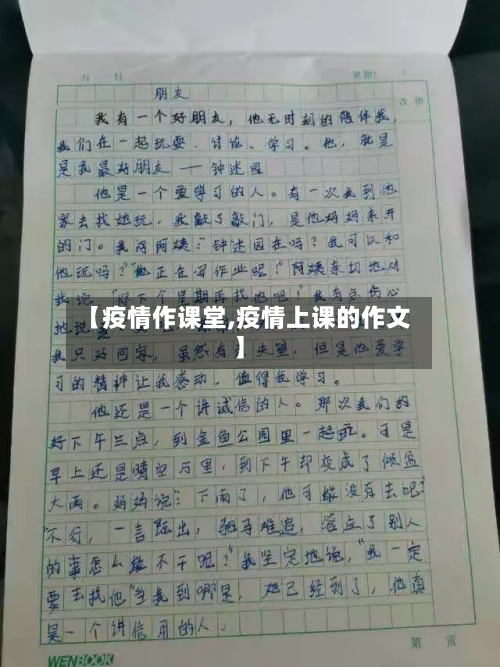 月 日
星期:
朋友
批 措
我有一个好朋友，他无时刻的陪伴我，
我们在一起玩耍、讨论、学习。他，就是
是我最好朋友——钟述园
他是一个爱学习的人。有一次我到他
家去找他玩，我敲了敲门，是他妈妈来开
的门。我问阿姨："钟述园在吗？我可以和
他玩吗？""他正在写作业呢！"阿姨亲切地对
我说。"好下个星期再找他吧！"我有急伤心
地说
【疫情作课堂,疫情上课的作文
】
我只好回家，虽然有 失望，但是他爱学
习的精神让我感动，值得我学习。
他还是一个讲诚信的人。那次我们约
好下午三点，到金鱼公园里一起玩。可是
早上还是晴空万里，到下午却变成了倾盆
大雨。妈妈说："下雨了，他可能没有去吧？"
"不行，一言既出，驷马难追，答应了别人
的事怎么能不干呢？"我坚定地说，"我一定
要去找他"当我到哪是，他已经到了，他真
是一个讲信用的人。
WENBOOK
第 页